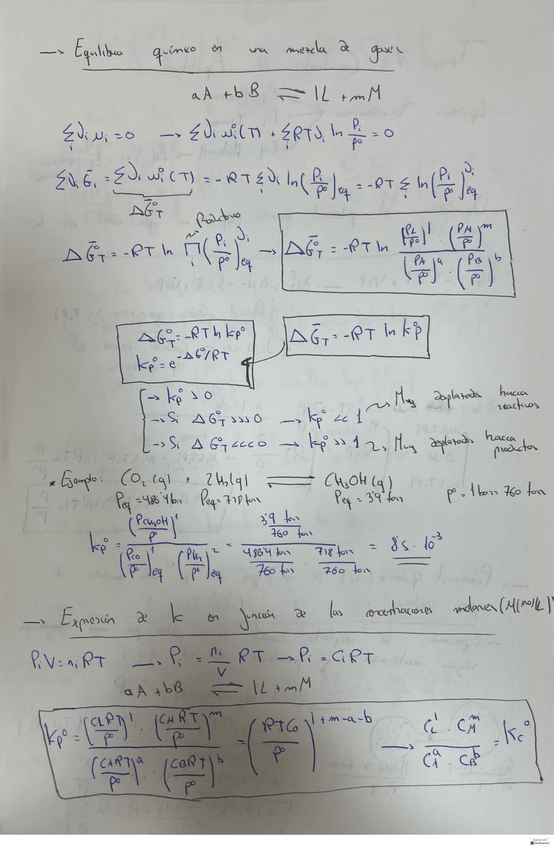 → Equilibrio químico en una mezcla de gases
aA + bB ⇌ lL + mM
Σνi μi = 0 → Σνi μi°(T) + ΣRTνi ln Pi/P° = 0
Σνi Ḡi = Σνi μi°(T) = -RT Σνi ln(Pi/P°)eq = -RT Σ ln(Pi/P°)eq^νi
ΔḠ°T
Productorio
ΔḠ°T = -RT ln Π i (Pi/P°)eq^νi → ΔḠ°T = -RT ln (PL/P°)^l (PM/P°)^m / (PA/P°)^a · (PB/P°)^b
ΔG°T = -RT ln kp°
kp° = e^-ΔG°/RT
ΔḠT = -RT ln k°p
→ kp° > 0
→ Si ΔG°T >>> 0 → kp° << 1 → Muy desplazada hacca reactivos
→ Si ΔG°T <<< 0 → kp° >> 1 → Muy desplazada hacca productos
* Ejemplo: CO2(g) + 2H2(g) ⇌ CH3OH(g)
Peq = 486'4 torr Peq = 7'18 torr Peq = 3'9 torr P° = 1 bar = 760 torr
kp° = (PCH3OH/P°)^1 / (PCO/P°)^1 eq · (PH2/P°)^2 eq = 3'9 torr/760 torr / 486'4 torr/760 torr · 718 torr/760 torr = 8'5 · 10^-3
→ Expresión de k en función de las concentraciones molares (M(mol/L))
PiV = niRT → Pi = ni/V RT → Pi = CiRT
aA + bB ⇌ lL + mM
kp° = (CLRT/P°)^l · (CMRT/P°)^m / (CART/P°)^a · (CBRT/P°)^b = (RTC0/P°)^l+m-a-b → CL^l · CM^m / CA^a · CB^b = kc°